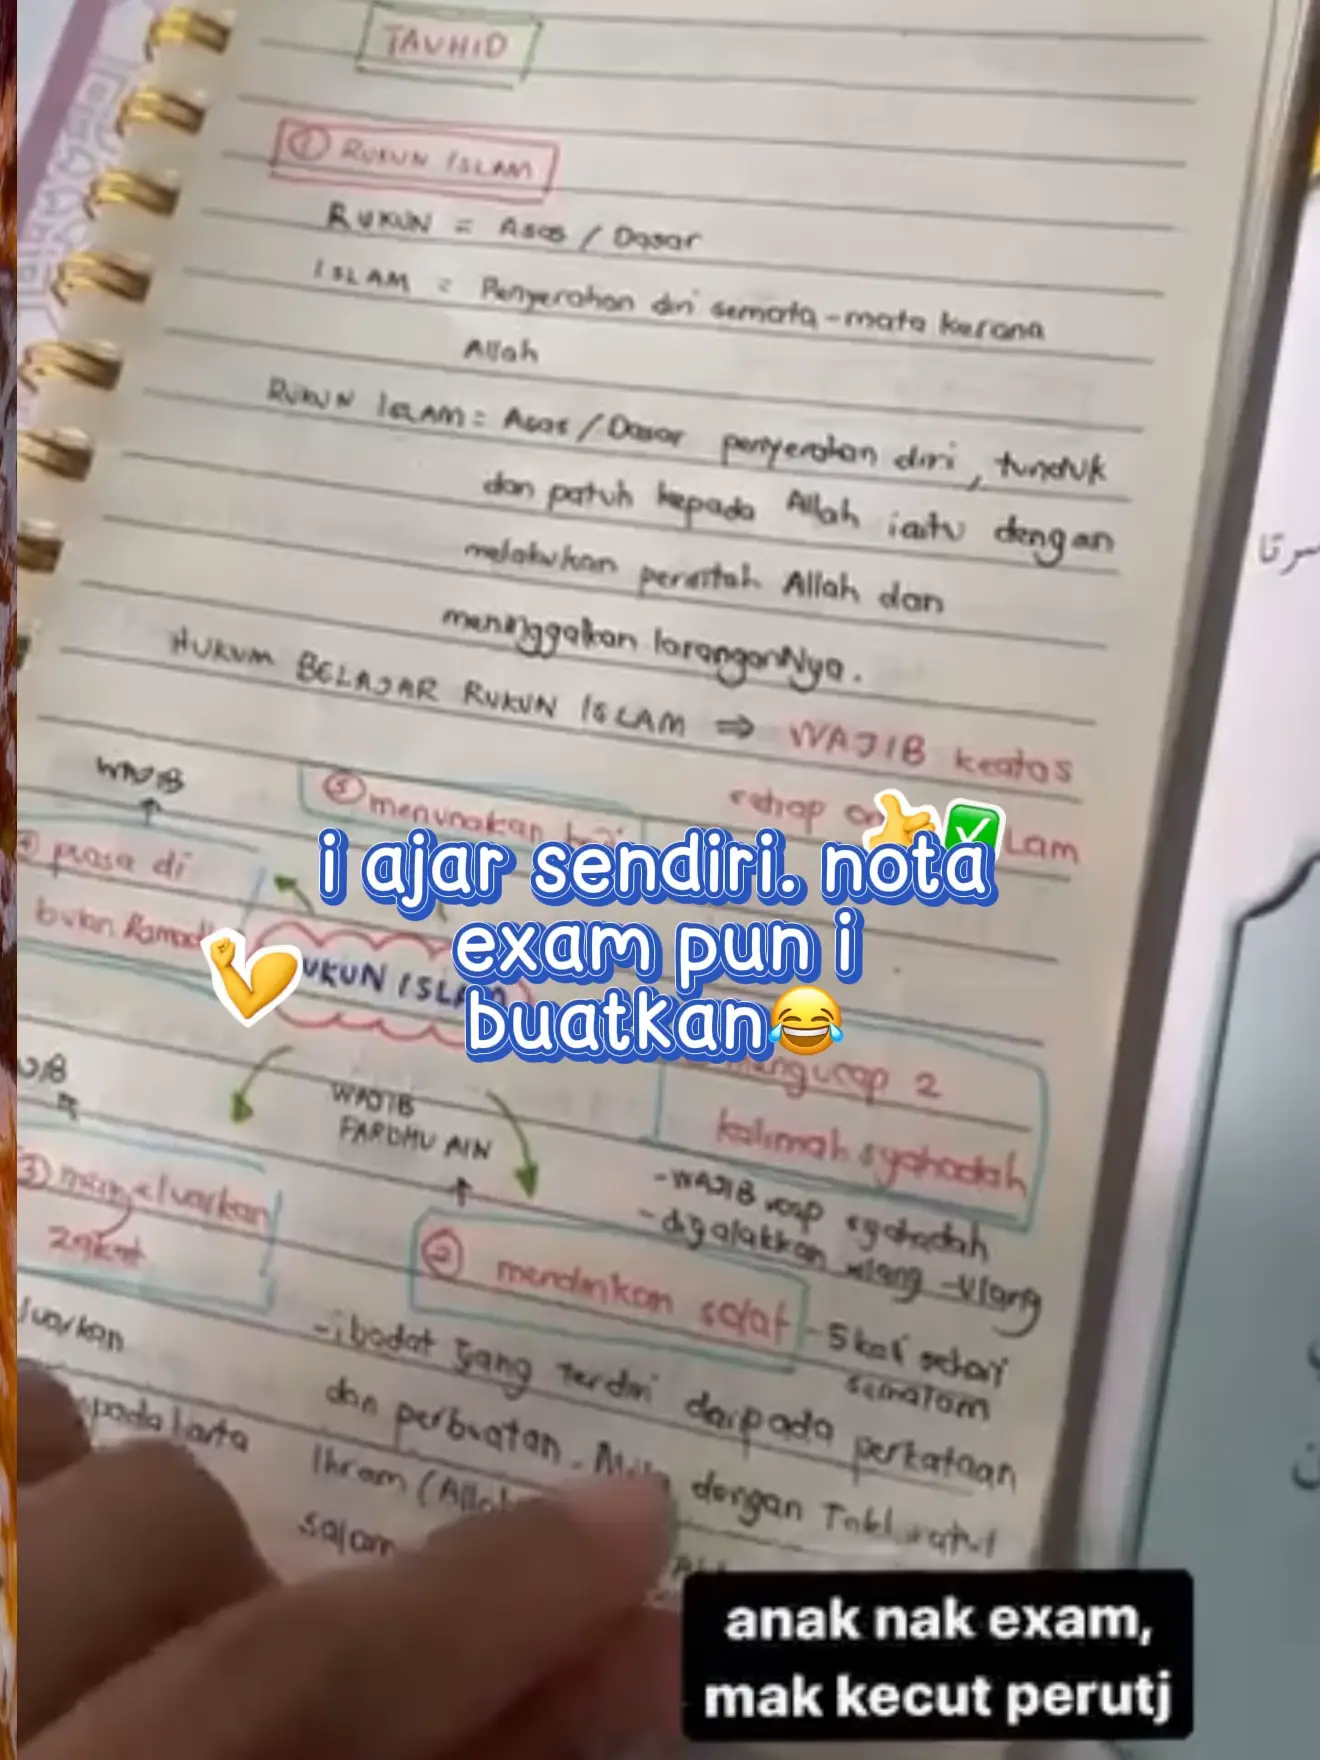 TAUHID
① RUKUN ISLAM
RUKUN = Asas / Dasar
ISLAM = Penyerahan diri semata-mata kerana
Allah
RUKUN ISLAM = Asas / Dasar penyerahan diri, tunduk
dan patuh kepada Allah iaitu dengan
melakukan perintah Allah dan
meninggalkan laranganNya.
HUKUM BELAJAR RUKUN ISLAM ⇒ WAJIB keatas
setiap
Lam
WAJIB
⑤ menunaikan
④ puasa di
bulan
i ajar sendiri. nota
exam pun i
buatkan😂
UKUN ISLAM
mengucap 2
kalimah syahadah
WAJIB
FARDHU AIN
- WAJIB ucap syahadah
- digalakkan ulang-ulang
③ mengeluarkan
zakat
② mendirikan solat
- 5 kali sehari
semalam
- ibadat yang terdiri daripada perkataan
dan perbuatan. dengan
pada harta
Ihram
salam
anak nak exam,
mak kecut perutj
سرتا